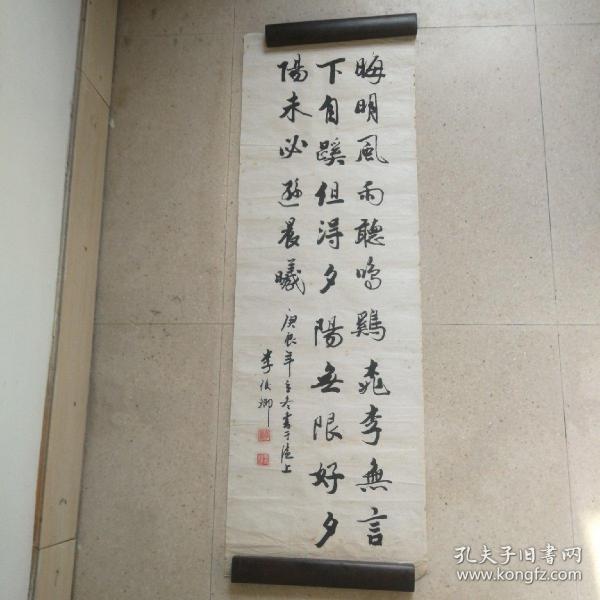 晦明風雨聽鳴鷄桃李無言
下自蹊但得夕陽無限好夕
陽未必遜晨曦
庚辰年冬書于滬上
李俊卿
孔夫子旧书网
www.kongfz.com